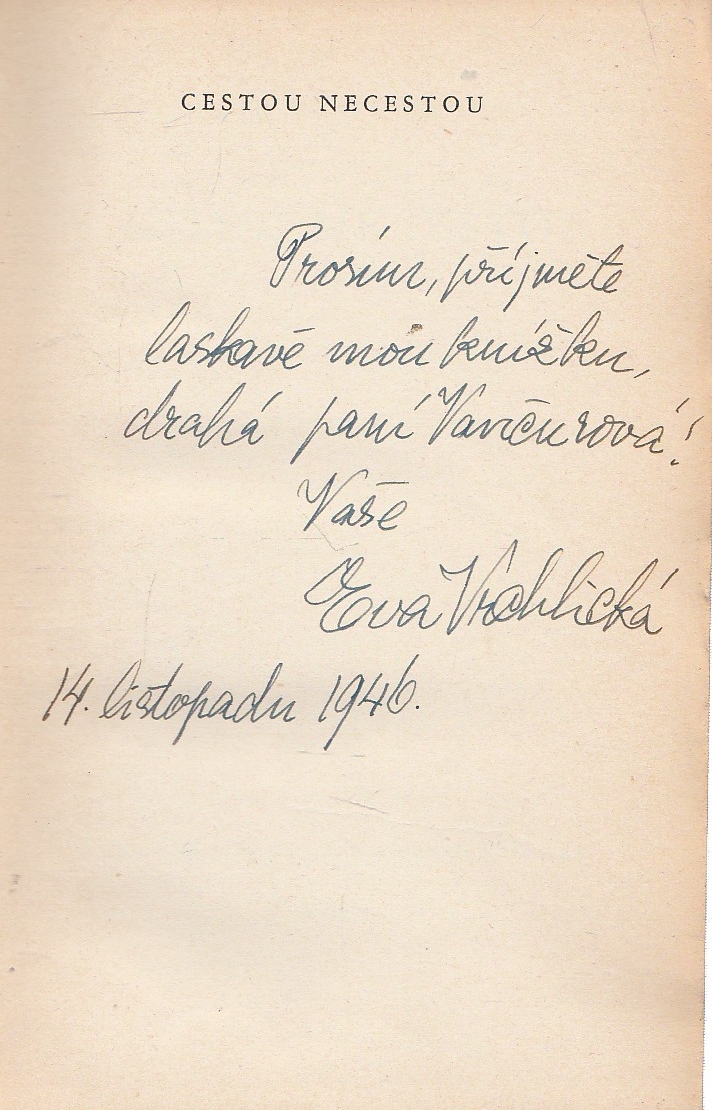 CESTOU NECESTOU
Prosím, přijměte
laskavě mou knížku,
drahá paní Vančurová!
Vaše
Eva Vrchlická
14. listopadu 1946.